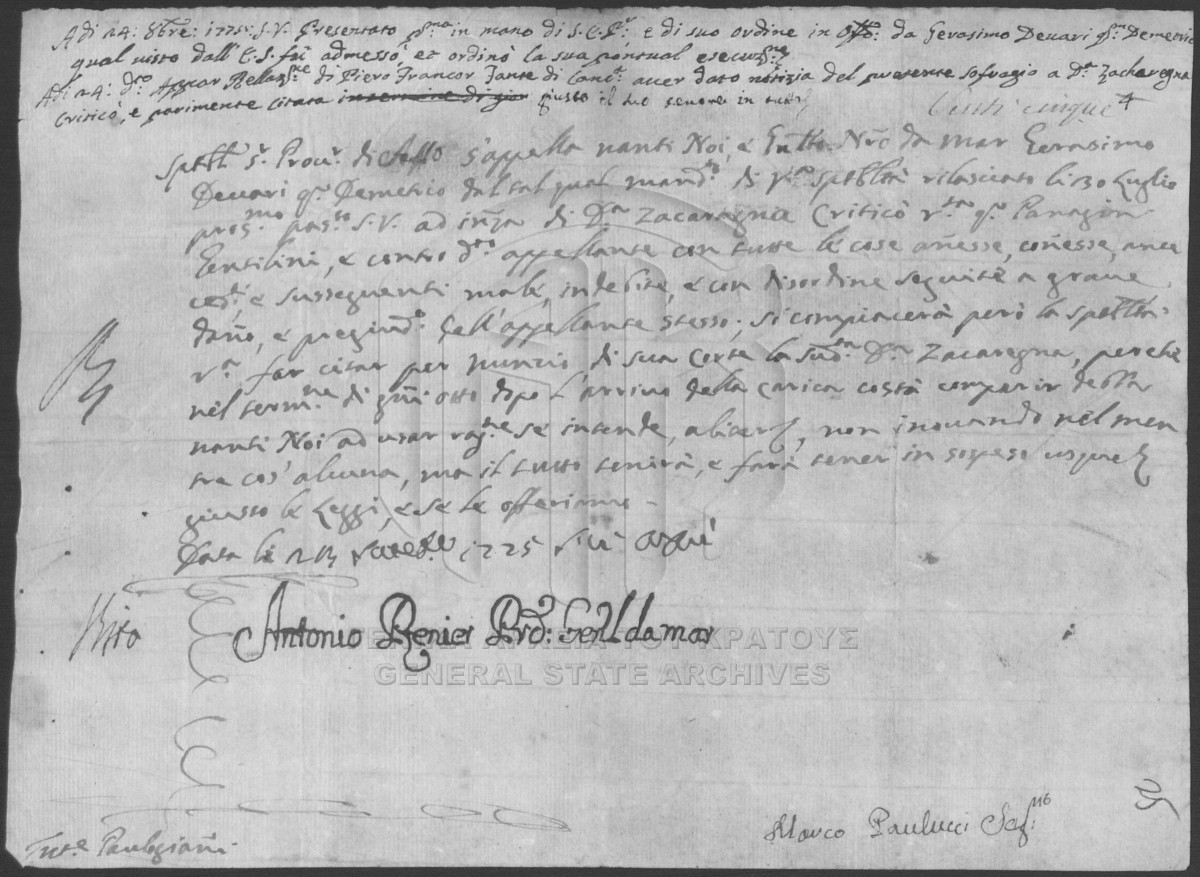 Adi 24: 8bre: 1725: S.V. Presentato in mano di S.E. Pr. e di suo ordine in Offo: da Gerasimo Devari qm Demetrio
qual visto dall' E.S. fù admesso, et ordinò la sua pontual esecuzne
Adi 24: do Appar Relazne di Piero Francor Fante di Canca. aver dato notizia del presente sofragio a Da Zacharegna
Criticò, e parimente citata giusto il suo tenore in tutto
Venti cinque 4
Spettl Sr. Provr. di Asso s'appella nanti Noi, e Gntto Nro da Mar Gerasimo
Devari qm Demetrio dal tal qual mando di Va. Spettltà rilasciato li 30 Luglio
prosmo passo S.V. ad inza di Da Zacaregna Criticò rta qm Panagin
Gentilini, e contro do appellante con tutte le cose anesse, conesse, ante
cedti, e susseguenti male, indebite, e con disordine seguite a grave
dano, e pregiudo dell' appellante stesso; si compiacerà però la Spettltà
Va. far citar per nunzio di sua Corte la sudta Da Zacaregna, perchè
nel termne di gni otto dopo l'arrivo della carica costà comparir debba
nanti Noi ad usar ragne se intende, aliter, non inovando nel men
tre cos' alcuna, ma il tutto tenirà, e farà tener in sospeso usque
giusto le Leggi, e se le offeriamo
Data li 1725
Antonio Renier Prov: Genl da mar
ΓΕΝΙΚΑ ΑΡΧΕΙΑ ΤΟΥ ΚΡΑΤΟΥΣ
GENERAL STATE ARCHIVES
Marco Paulucci Segrio